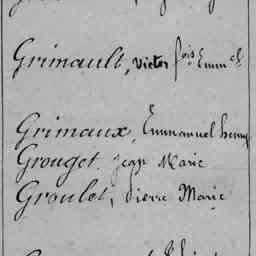 Grimault, Victor fois Emm el
Grimaux, Emmanuel henry
Grouget, Jean Marie
Groulet, Pierre Marie